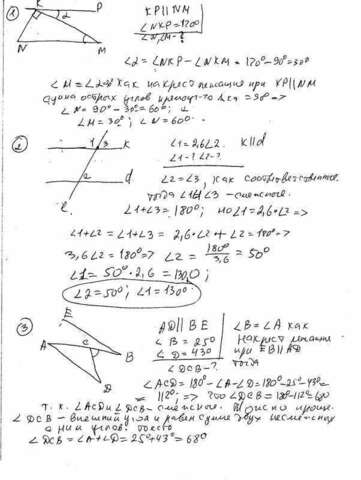 ① K P
2
N M
KP || NM
∠NKP = 120°
∠N, ∠M - ?
∠2 = ∠NKP - ∠NKM = 120° - 90° = 30°
∠M = ∠2 как накрест лежащие при KP || NM
сумма острых углов прямоуг-го = 90° =>
∠N = 90° - 30° = 60°;
∠M = 30°; ∠N = 60°.
② 1 3 K
2 d
l
∠1 = 2,6∠2. K || d
∠1 - ? ∠2 - ?
∠2 = ∠3, как соответственные.
тогда ∠1 и ∠3 - смежные.
∠1 + ∠3 = 180°; но ∠1 = 2,6·∠2 =>
∠1 + ∠2 = ∠1 + ∠3 = 2,6·∠2 + ∠2 = 180° =>
3,6∠2 = 180° => ∠2 = 180°/3,6 = 50°
∠1 = 50° · 2,6 = 130°;
∠2 = 50°; ∠1 = 130°
③ E
A C B
D
AD || BE
∠B = 25°
∠D = 43°
∠DCB - ?
∠B = ∠A как
накрест лежащие
при EB || AD
тогда
∠ACD = 180° - ∠A - ∠D = 180° - 25° - 43° =
= 112°; => ∠DCB = 180° - 112° = 68°
т.к. ∠ACD и ∠DCB - смежные. Можно проще.
∠DCB - внешний угол и равен сумме двух несмежных
с ним углов.
∠DCB = ∠A + ∠D = 25° + 43° = 68°